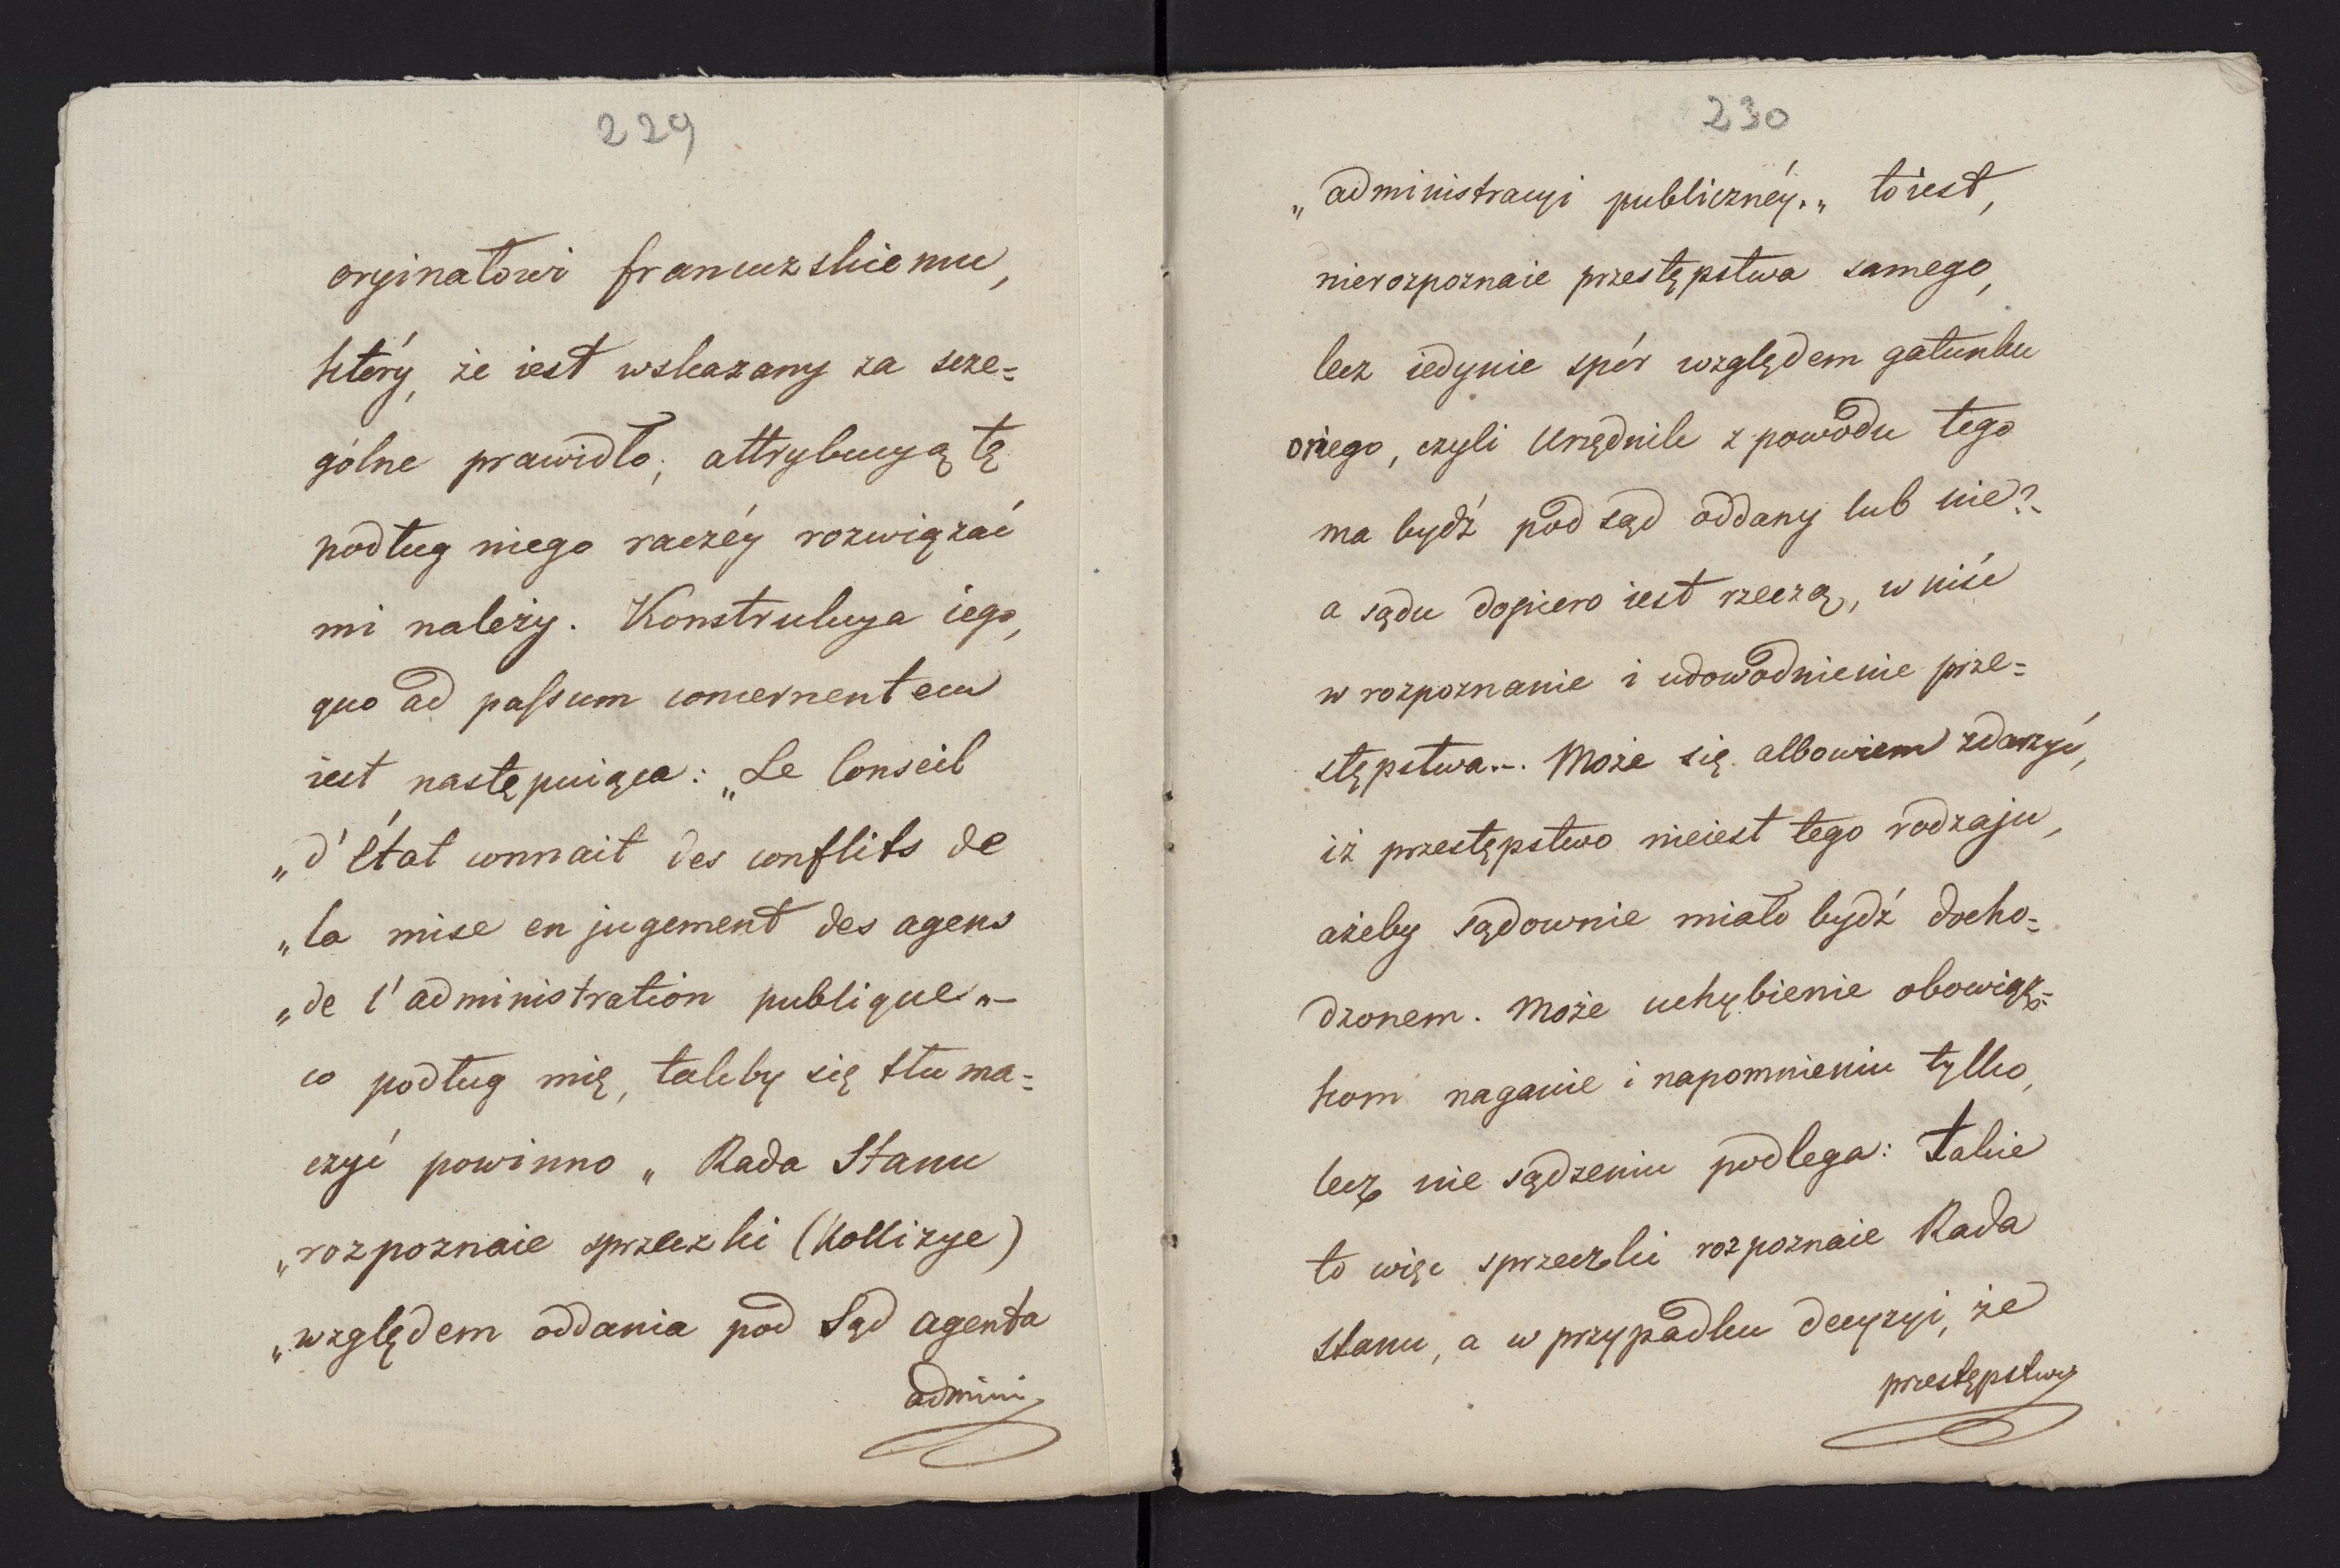 229
oryinałowi francuzskiemu,
który, że iest wskazany za szcze=
gólne prawidło; attrybucyą tę
podług niego raczéy rozwiązać
mi należy. Konstrukcya iego,
quo ad passum concernentem
iest następuiąca: „Le Conseil
„d'État connait des conflits de
„la mise en jugement des agens
„de l'administration publique„—
co podług mię, takby się tłuma=
czyć powinno „ Rada Stanu
„rozpoznaie sprzeczki (Kollizye)
„względem oddania pod Sąd agenta
admini
230
„administracyi publicznéy.„ toiest,
nierozpoznaie przestępstwa samego,
lecz iedynie spór względem gatunku
oniego, czyli Urzędnik z powodu tego
ma bydź pod sąd oddany lub nie?
a sądu dopiero iest rzeczą, wniść
w rozpoznanie i udowodnienie prze=
stępstwa.—. Może się albowiem zdarzyć,
iż przestępstwo nieiest tego rodzaju,
ażeby sądownie miało bydź docho=
dzonem. Może uchybienie obowiąz=
kom naganie i napomnieniu tylko,
lecz nie sądzeniu podlega: Takie
to więc sprzeczki rozpoznaie Rada
Stanu, a w przypadku decyzyi, że
przestępstwo